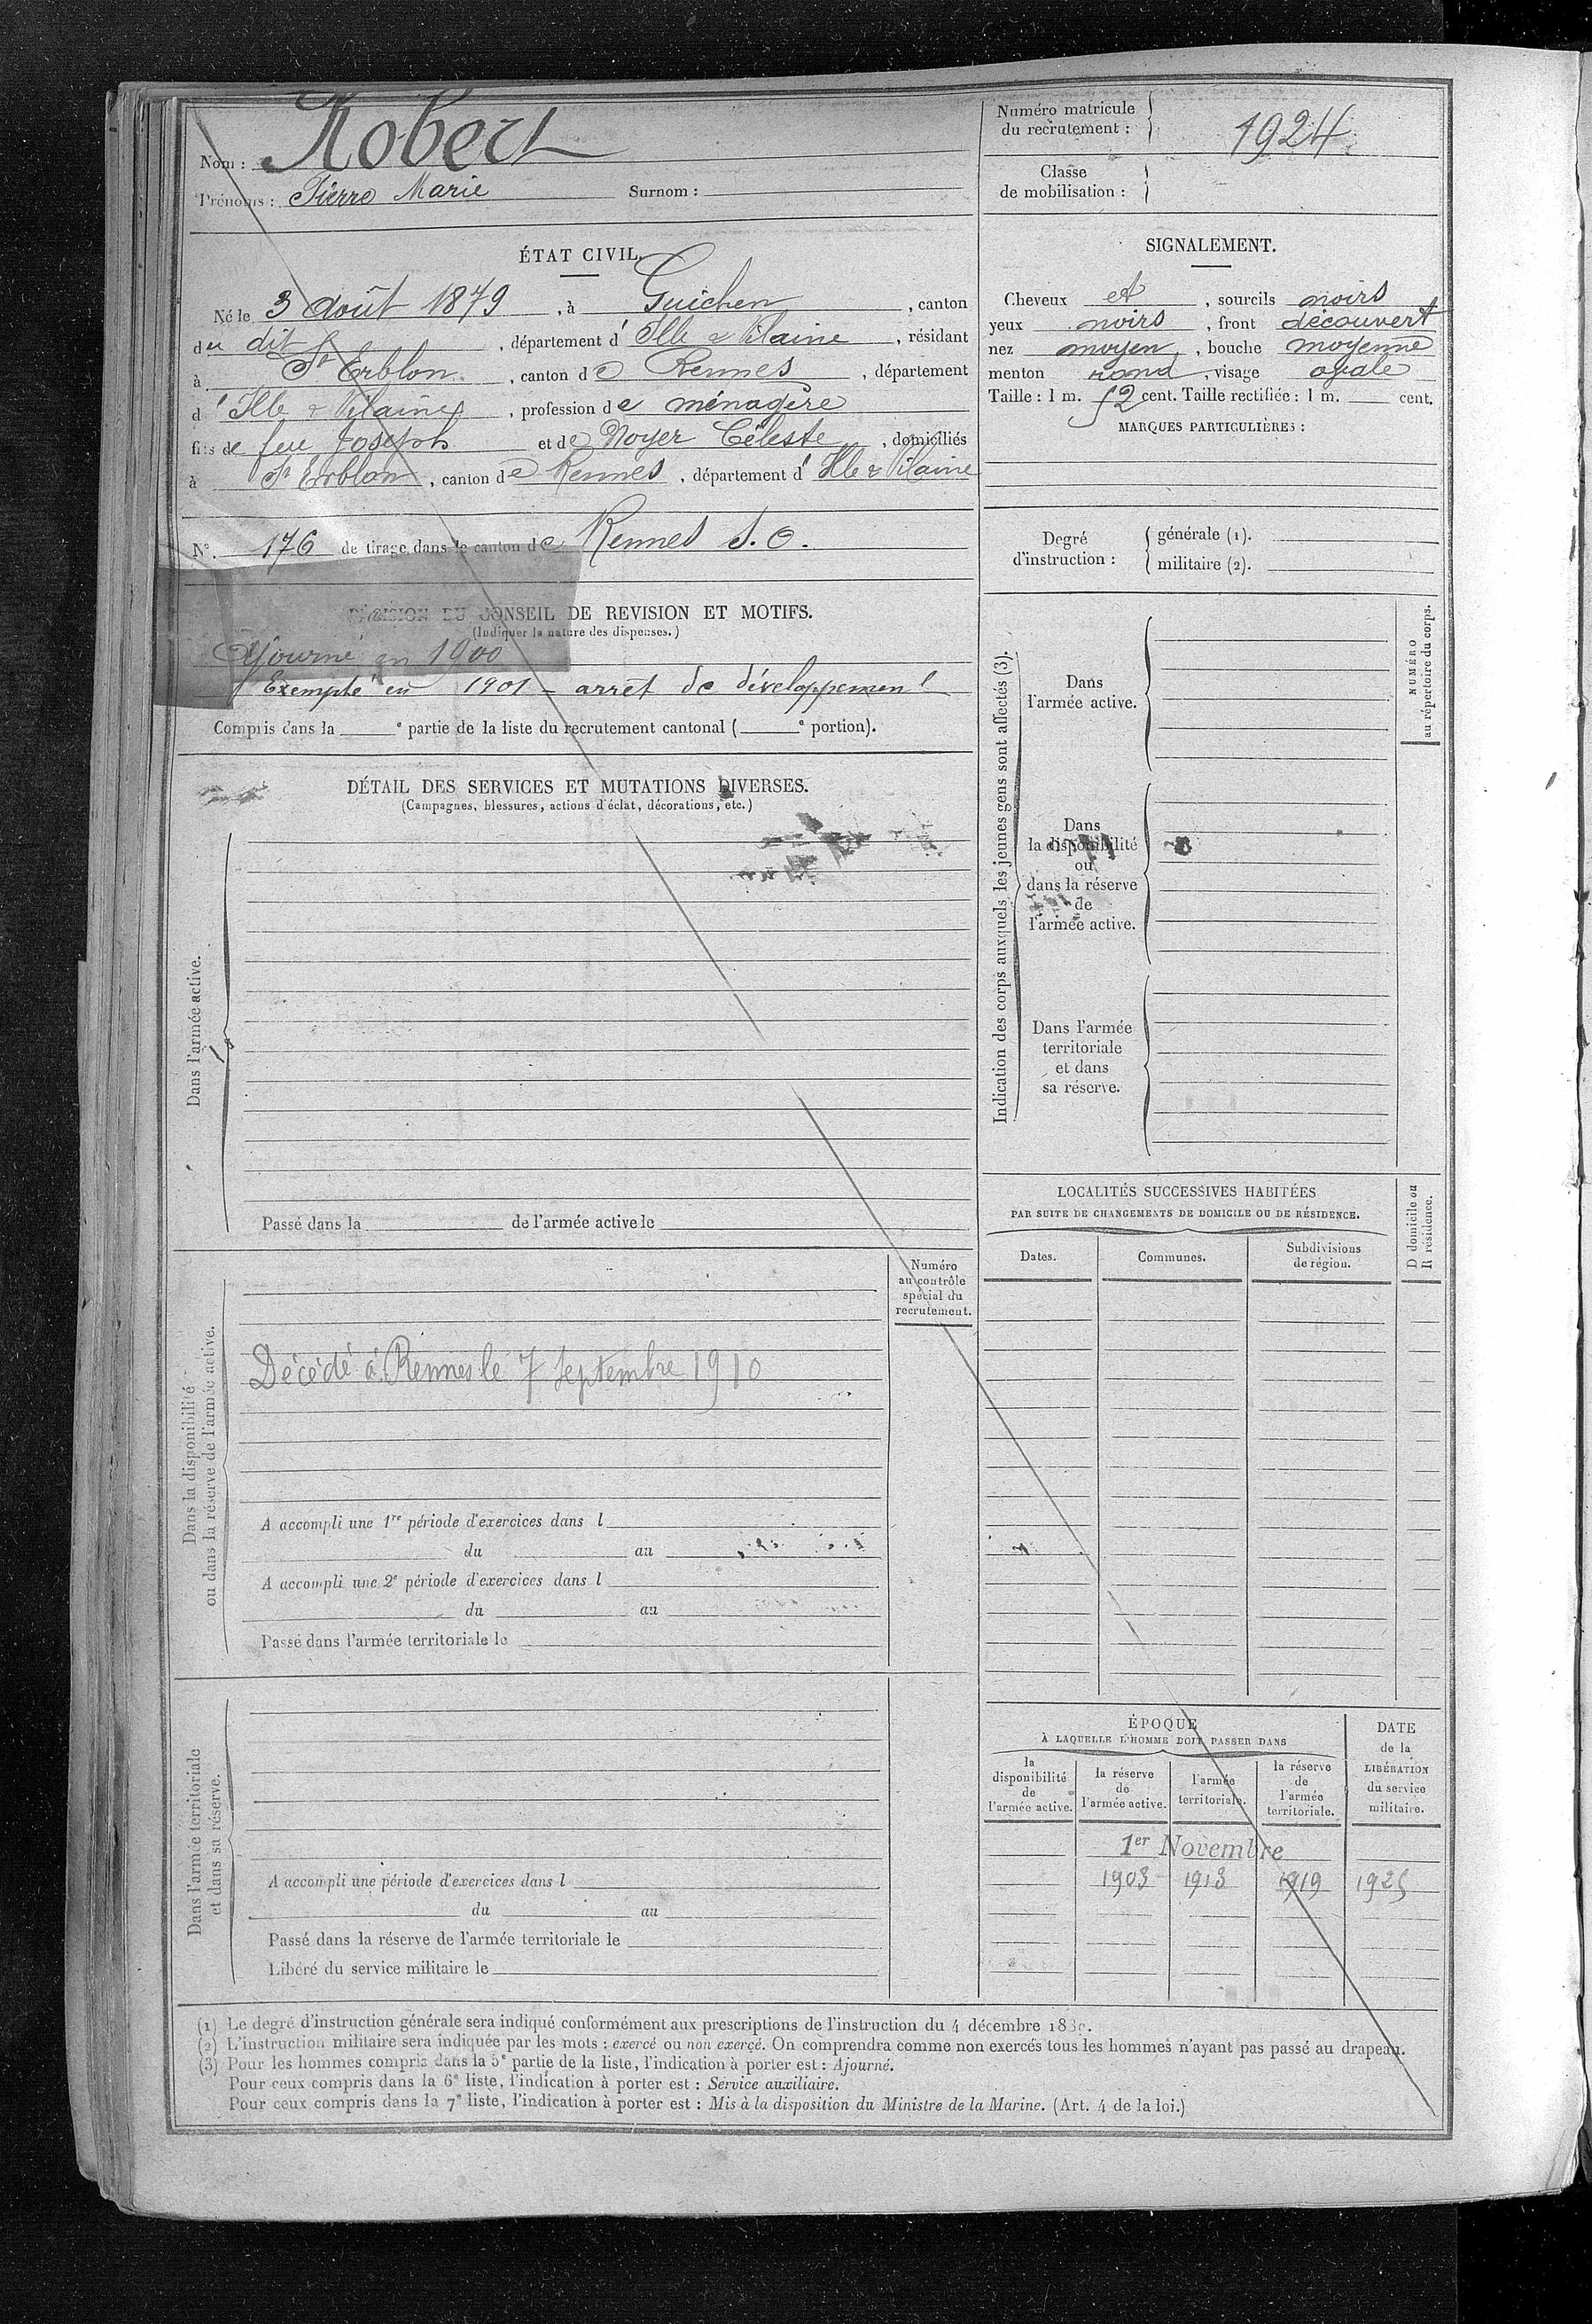 Nom : Robert
Prénoms : Pierre Marie Surnom :
Numéro matricule
du recrutement : 1924
Classe
de mobilisation :
ÉTAT CIVIL.
Né le 3 août 1879, à Guichen, canton
du dit, département d'Ille & Vilaine, résidant
à St Erblon, canton de Rennes, département
d'Ille & Vilaine, profession de ménagère
fils de feu Joseph et de Noyer Céleste, domiciliés
à St Erblon, canton de Rennes, département d'Ille & Vilaine
N° 176 de tirage dans le canton de Rennes S. O.
DÉCISION DU CONSEIL DE REVISION ET MOTIFS.
(Indiquer la nature des dispenses.)
Ajourné en 1900
Exempté en 1901 - arrêt de développement
Compris dans la e partie de la liste du recrutement cantonal ( e portion).
SIGNALEMENT.
Cheveux et, sourcils noirs
yeux noirs, front découvert
nez moyen, bouche moyenne
menton rond, visage ovale
Taille : 1 m. 52 cent. Taille rectifiée : 1 m. cent.
MARQUES PARTICULIÈRES :
Degré
d'instruction :
générale (1).
militaire (2).
DÉTAIL DES SERVICES ET MUTATIONS DIVERSES.
(Campagnes, blessures, actions d'éclat, décorations, etc.)
Dans l'armée active.
Passé dans la de l'armée active le
Indication des corps auxquels les jeunes gens sont affectés (3).
Dans
l'armée active.
Dans
la disponibilité
ou
dans la réserve
de
l'armée active.
Dans l'armée
territoriale
et dans
sa réserve.
NUMÉRO
au répertoire du corps.
Dans la disponibilité
ou dans la réserve de l'armée active.
Numéro
au contrôle
spécial du
recrutement.
Décédé à Rennes le 7 septembre 1910
A accompli une 1re période d'exercices dans l
du au
A accompli une 2e période d'exercices dans l
du au
Passé dans l'armée territoriale le
LOCALITÉS SUCCESSIVES HABITÉES
PAR SUITE DE CHANGEMENTS DE DOMICILE OU DE RÉSIDENCE.
Dates.
Communes.
Subdivisions
de région.
D domicile ou
R résidence.
Dans l'armée territoriale
et dans sa réserve.
A accompli une période d'exercices dans l
du au
Passé dans la réserve de l'armée territoriale le
Libéré du service militaire le
ÉPOQUE
À LAQUELLE L'HOMME DOIT PASSER DANS
la
disponibilité
de
l'armée active.
la réserve
de
l'armée active.
l'armée
territoriale.
la réserve
de
l'armée
territoriale.
DATE
de la
LIBÉRATION
du service
militaire.
1er Novembre
1903 1913 1919 1925
(1) Le degré d'instruction générale sera indiqué conformément aux prescriptions de l'instruction du 4 décembre
(2) L'instruction militaire sera indiquée par les mots : exercé ou non exercé. On comprendra comme non exercés tous les hommes n'ayant pas passé au drapeau.
(3) Pour les hommes compris dans la 5e partie de la liste, l'indication à porter est : Ajourné.
Pour ceux compris dans la 6e liste, l'indication à porter est : Service auxiliaire.
Pour ceux compris dans la 7e liste, l'indication à porter est : Mis à la disposition du Ministre de la Marine. (Art. 4 de la loi.)